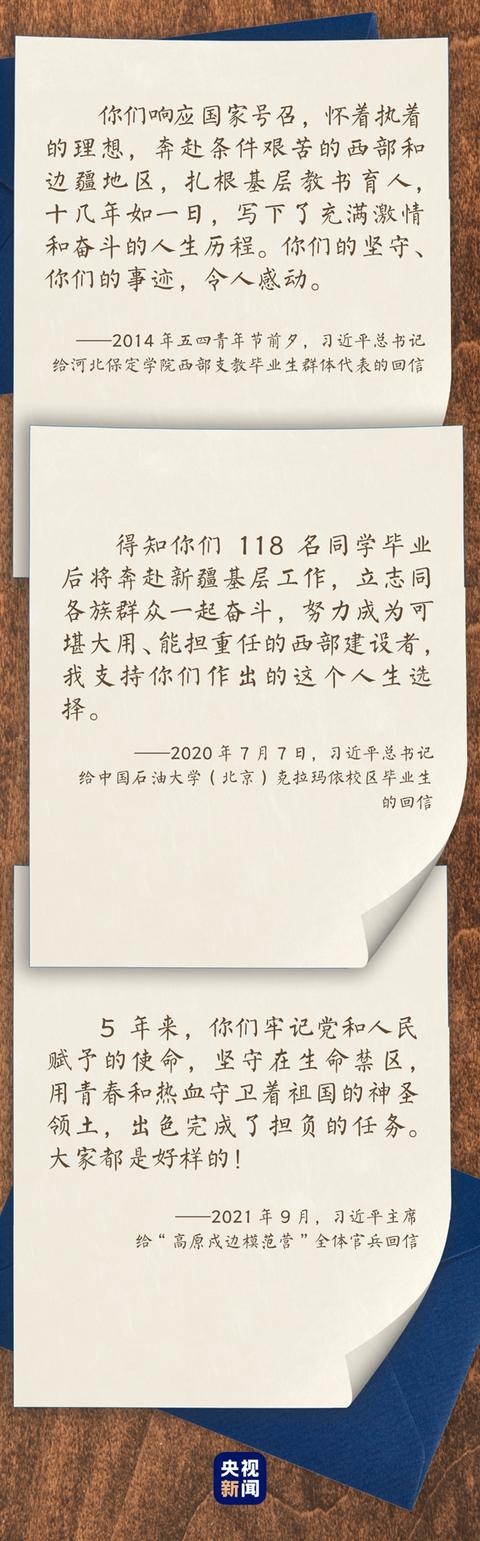 你们响应国家号召，怀着执着
的理想，奔赴条件艰苦的西部和
边疆地区，扎根基层教书育人，
十几年如一日，写下了充满激情
和奋斗的人生历程。你们的坚守、
你们的事迹，令人感动。
——2014年五四青年节前夕，习近平总书记
给河北保定学院西部支教毕业生群体代表的回信
得知你们 118 名同学毕业
后将奔赴新疆基层工作，立志同
各族群众一起奋斗，努力成为可
堪大用、能担重任的西部建设者，
我支持你们作出的这个人生选
择。
——2020年7月7日，习近平总书记
给中国石油大学（北京）克拉玛依校区毕业生
的回信
5 年来，你们牢记党和人民
赋予的使命，坚守在生命禁区，
用青春和热血守卫着祖国的神圣
领土，出色完成了担负的任务。
大家都是好样的！
——2021年9月，习近平主席
给“高原戍边模范营”全体官兵回信
央视
新闻